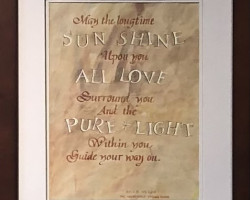 May the longtime
SUN SHINE
Upon you
ALL LOVE
Surround you
And the
PURE LIGHT
Within you,
Guide your way on.